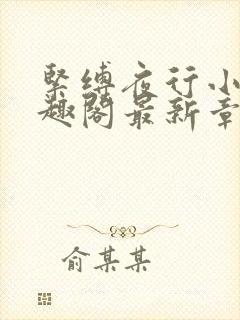 緊縛夜行小
趣閣最新章
俞某某